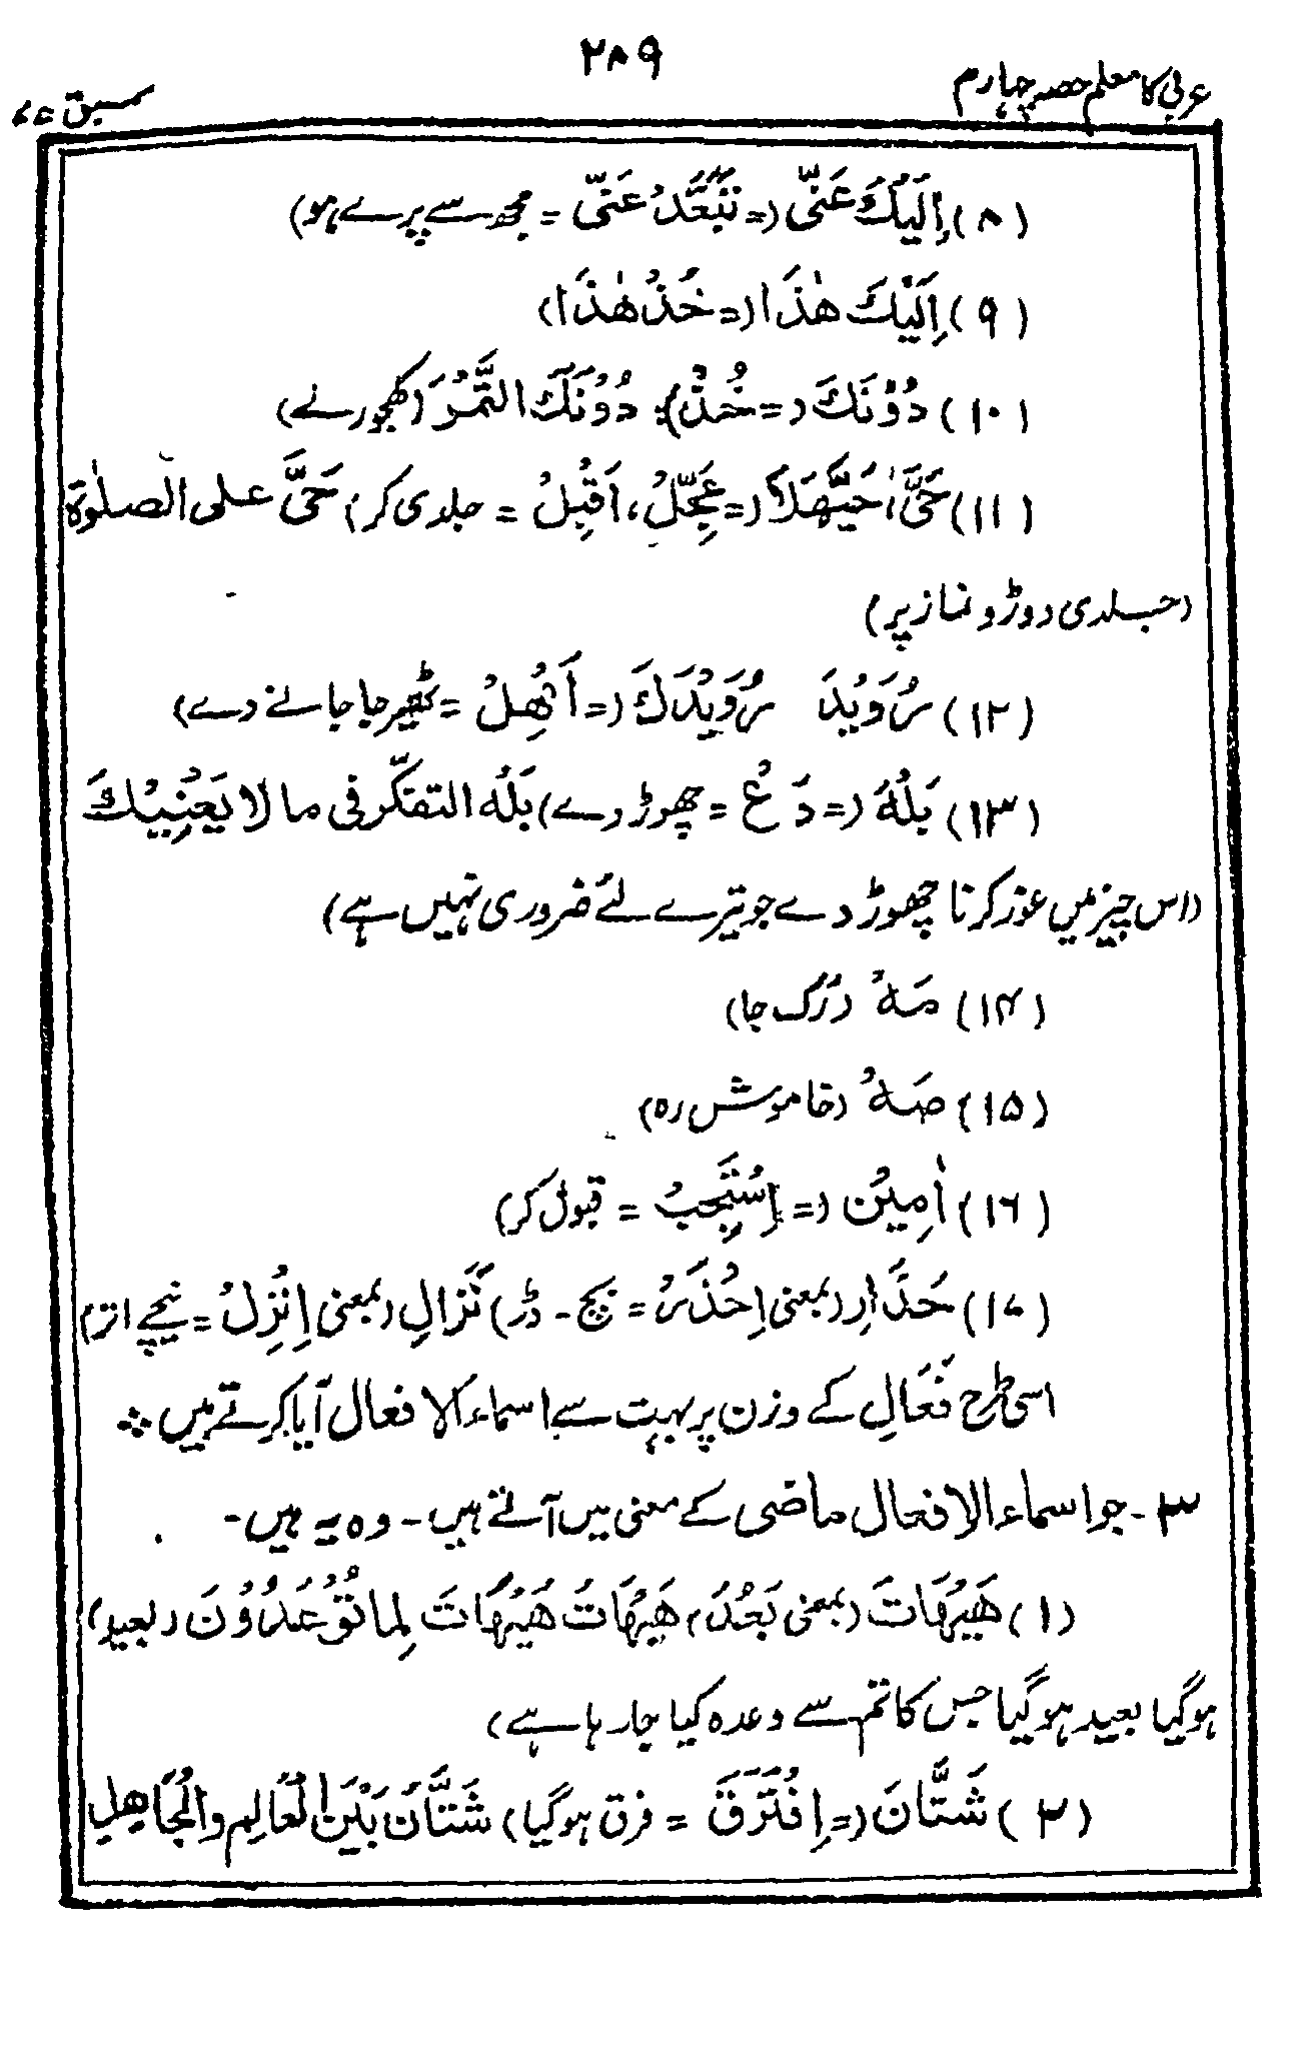 ۲۸۹
عربی کا معلم حصہ چہارم
سبق ۷۰
(۸) اِلَیْكَ عَنِّی (= تَبَعَّدْ عَنِّی = مجھ سے پرے ہو)
(۹) اِلَیْكَ هٰذَا (= خُذْ هٰذَا)
(۱۰) دُوْنَكَ (= خُذْ): دُوْنَكَ التَّمْرَ (کھجور لے)
(۱۱) حَیَّ، حَیَّهَلًا (= عَجِّلْ، اَقْبِلْ = جلدی کر) حَیَّ علی الصلٰوة
(جلدی دوڑو نماز پر)
(۱۲) رُوَیْدَ رُوَیْدَكَ (= اَمْهِلْ = ٹھیر جا جانے دے)
(۱۳) بَلْهَ (= دَعْ = چھوڑ دے) بَلْهَ التفکّر فی ما لا یَعْنِیْكَ
(اس چیز میں غور کرنا چھوڑ دے جو تیرے لئے ضروری نہیں ہے)
(۱۴) مَهْ (رُک جا)
(۱۵) صَهْ (خاموش رہ)
(۱۶) اٰمِیْن (= اِسْتَجِبْ = قبول کر)
(۱۷) حَذَارِ (بمعنی اِحْذَرْ = بچ - ڈر) نَزَالِ (بمعنی اِنْزِلْ = نیچے اتر)
اسی طرح فَعَالِ کے وزن پر بہت سے اسماء الافعال آیا کرتے ہیں ؞
۳ - جو اسماء الافعال ماضی کے معنی میں آتے ہیں - وہ یہ ہیں -
(۱) هَیْهَاتَ (بمعنی بَعُدَ) هَیْهَاتَ هَیْهَاتَ لِما تُوْعَدُوْنَ (بعید
ہو گیا بعید ہو گیا جس کا تم سے وعدہ کیا جا رہا ہے)
(۲) شَتَّانَ (= اِفْتَرَقَ = فرق ہو گیا) شَتَّانَ بَیْنَ الْعَالِمِ والْجَاهِلِ